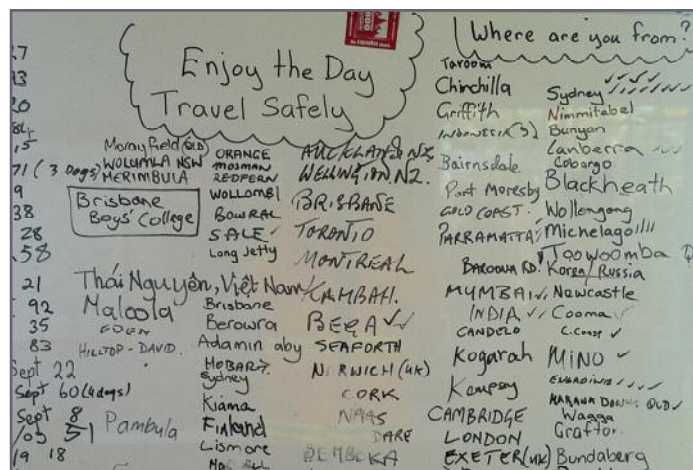 Enjoy the Day
Travel Safely
Where are you from?
27
93
20
71 (3 Days)
9
38
28
58
21
92
35
83
Sept 22
Sept 60 (4 days)
Sept 8
51
19 18
Morayfield QLD
WOLUMLA NSW
MERIMBULA
Brisbane
Boys' College
Thái Nguyên, Việt Nam
Maloola
EDEN
HILLTOP - DAVID.
Pambula
ORANGE
MOSMAN
REDFERN
WOLLOMBI
BOWRAL
SALE
Long Jetty
Brisbane
Berowra
Adaminaby
HOBART
Sydney
Kiama
Finland
Lismore
AUCKLAND NZ
WELLINGTON NZ.
BRISBANE
TORONTO
MONTREAL
KAMBAH.
BEGA ✓✓
SEAFORTH
NORWICH (UK)
CORK
NAAS
DARE
BEMBOKA
Taroom
Chinchilla
Griffith
INDONESIA (3)
Bairnsdale
Port Moresby
GOLD COAST.
PARRAMATTA
BAROONA RD.
MUMBAI
INDIA
CANDELO
Kogarah
Kempsey
CAMBRIDGE
LONDON
EXETER (UK)
Sydney
Nimmitabel
Bunyan
Canberra
Cobargo
Blackheath
Wollongong
Michelago
Toowoomba
Korea/Russia
Newcastle
Cooma ✓
C.Coast ✓
MINO ✓
ENGADINE
Wagga
Grafton
Bundaberg